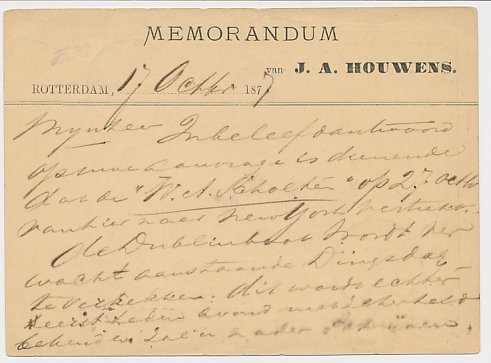 MEMORANDUM
van J. A. HOUWENS.
ROTTERDAM, 17 Octbr 1877
Mynheer In beleefd antwoord
op uwe aanvrage is dienende
dat de "W. A. Scholten" op 27 octbr
van hier naar New York vertrekt.
De Dublinboot wordt ver
wacht aanstaande Dingsdag
te vertrekken; dit wordt echter
eerst heden avond met zekerheid
bekend en zal u nader